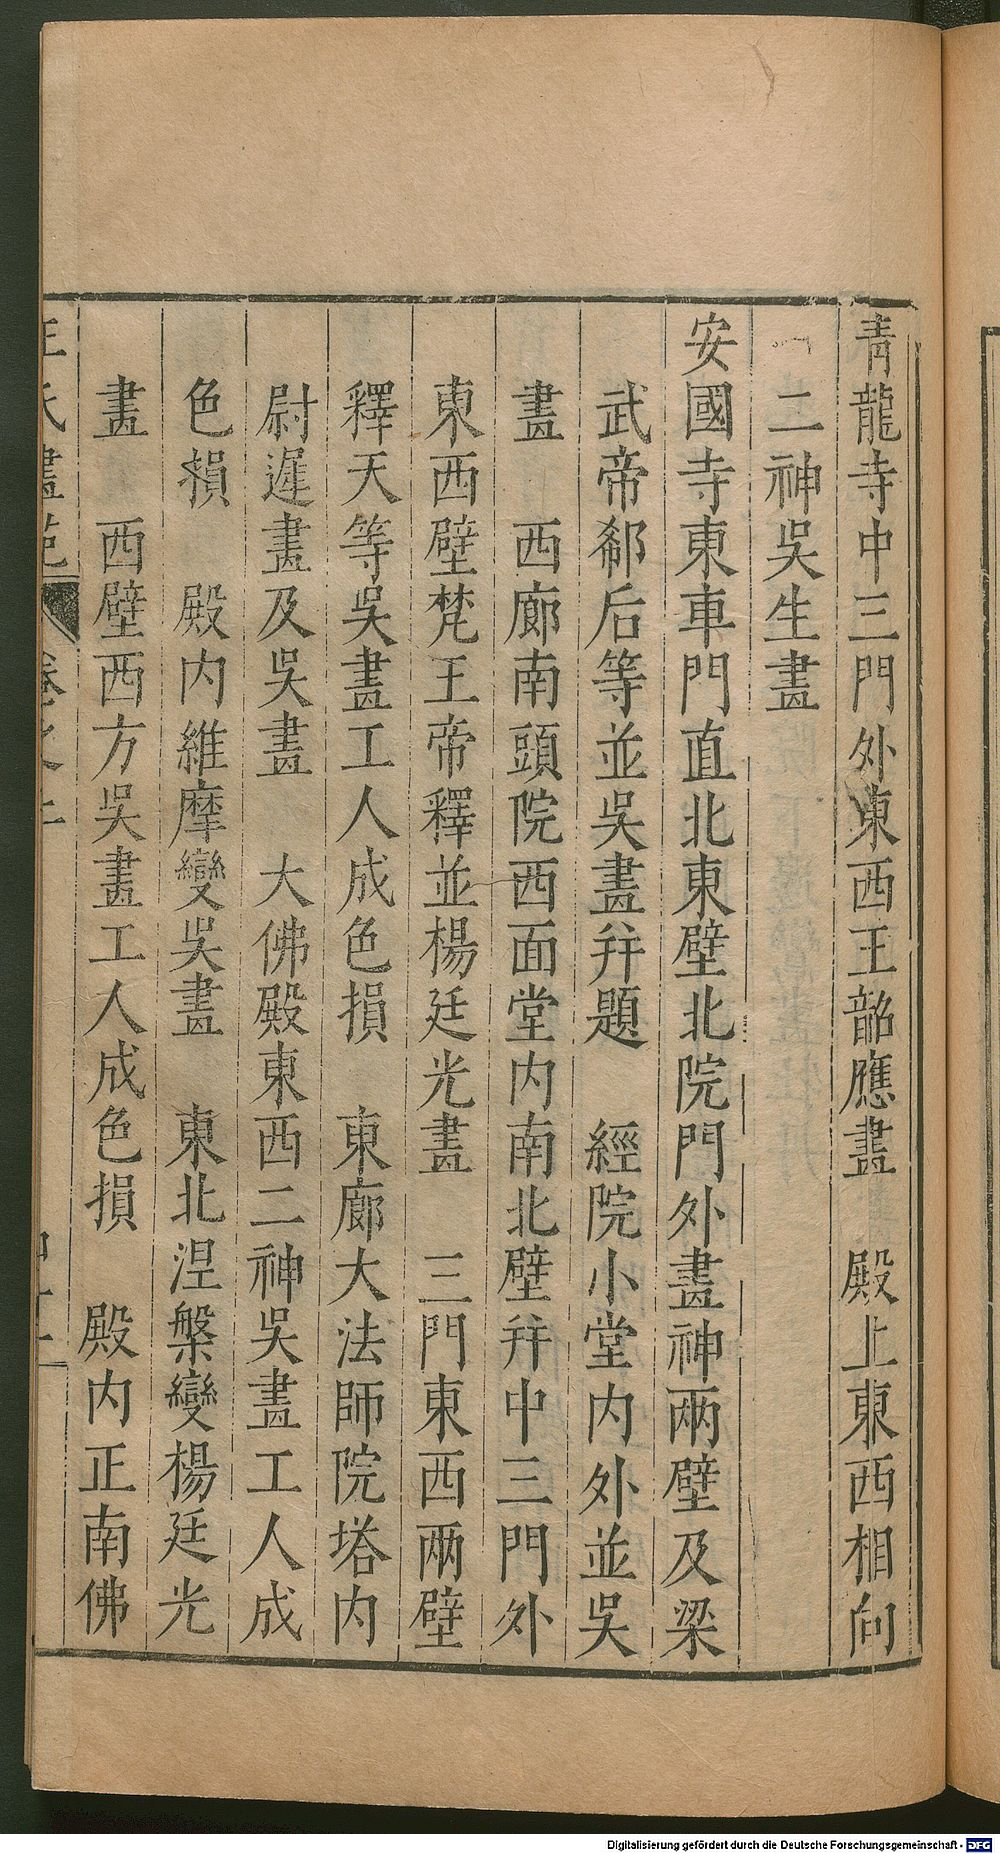 青龍寺中三門外東西王韶應畫　殿上東西相向
二神吳生畫
安國寺東車門直北東壁北院門外畫神兩壁及梁
武帝郗后等並吳畫幷題　經院小堂內外並吳
畫　西廊南頭院西面堂內南北壁幷中三門外
東西壁梵王帝釋並楊廷光畫　三門東西兩壁
釋天等吳畫工人成色損　東廊大法師院塔內
尉遲畫及吳畫　大佛殿東西二神吳畫工人成
色損　殿內維摩變吳畫　東北涅槃變楊廷光
畫　西壁西方吳畫工人成色損　殿內正南佛
王氏畫苑　卷之二
Digitalisierung gefördert durch die Deutsche Forschungsgemeinschaft - DFG